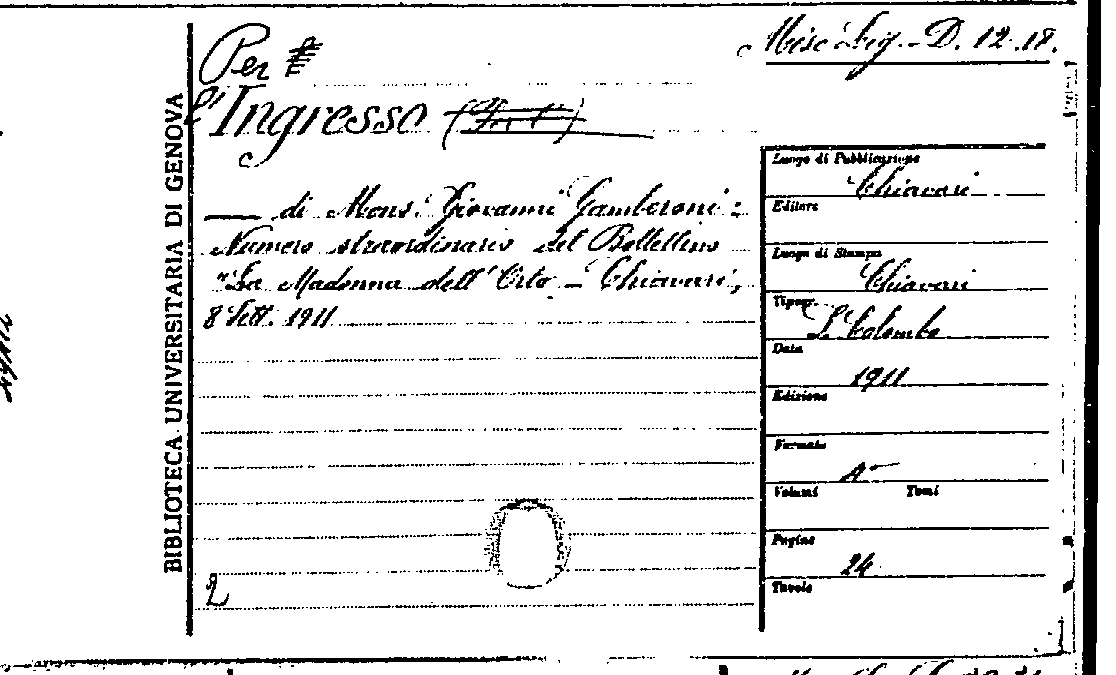 Misc. Lig. D. 12. 18.
Per
l'Ingresso
— di Mons. Giovanni Gamberoni:
Numero straordinario del Bollettino
"La Madonna dell'Orto – Chiavari,
8 Sett. 1911
2
BIBLIOTECA UNIVERSITARIA DI GENOVA
Luogo di Pubblicazione
Chiavari
Editore
Luogo di Stampa
Chiavari
Tipogr.
L. Colombo
Data
1911
Edizione
Formato
4°
Volumi Tomi
Pagine
24
Tavole